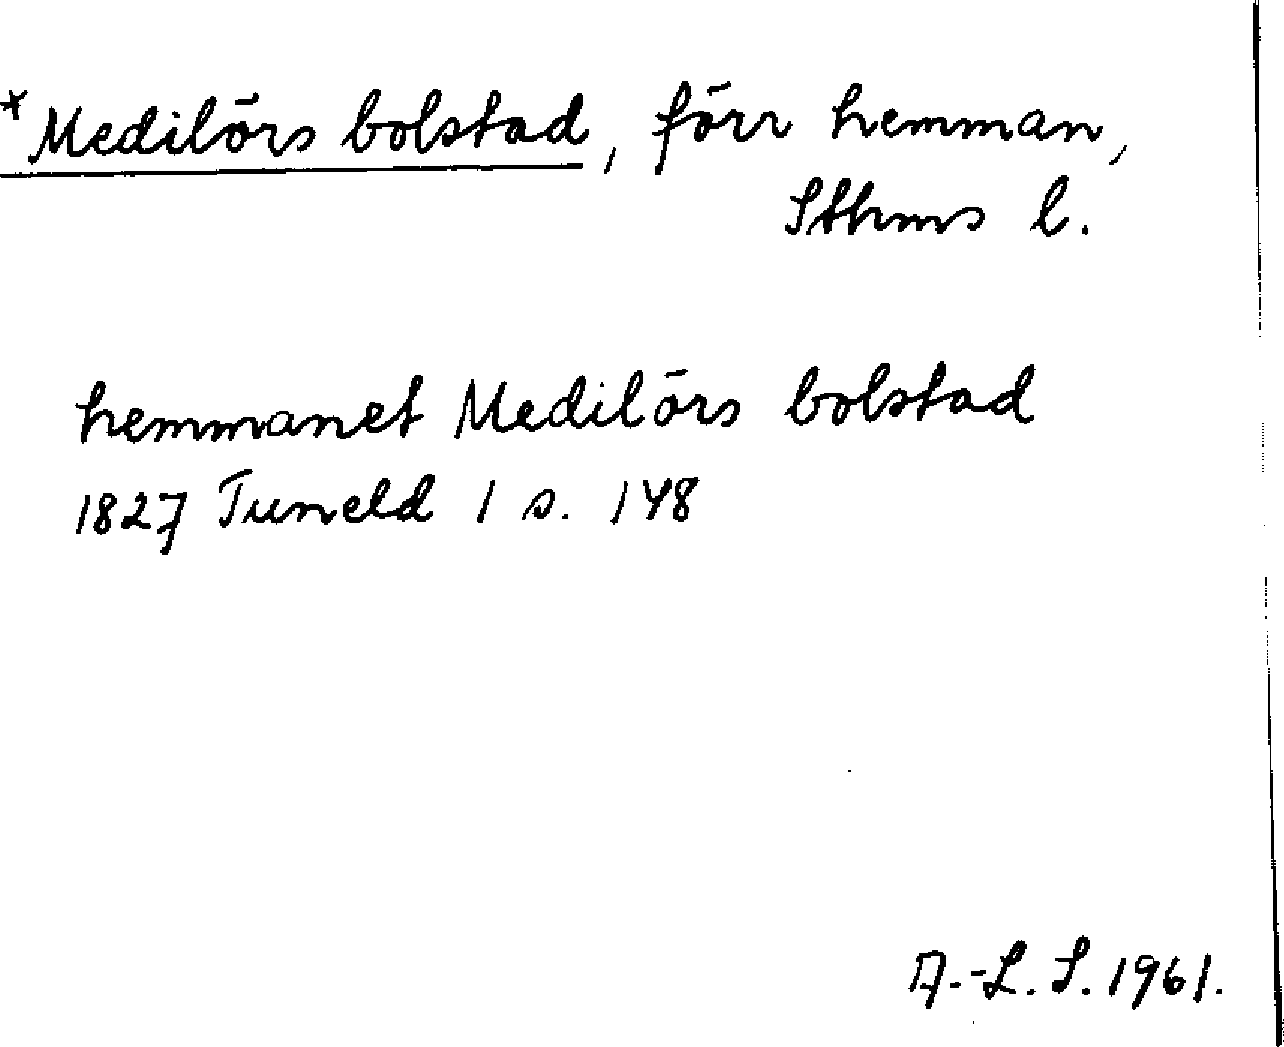 *Medilörs bolstad, förr hemman,
Sthms l.
hemmanet Medilörs bolstad
1827 Tuneld 1 s. 148
A.-L. S. 1961.